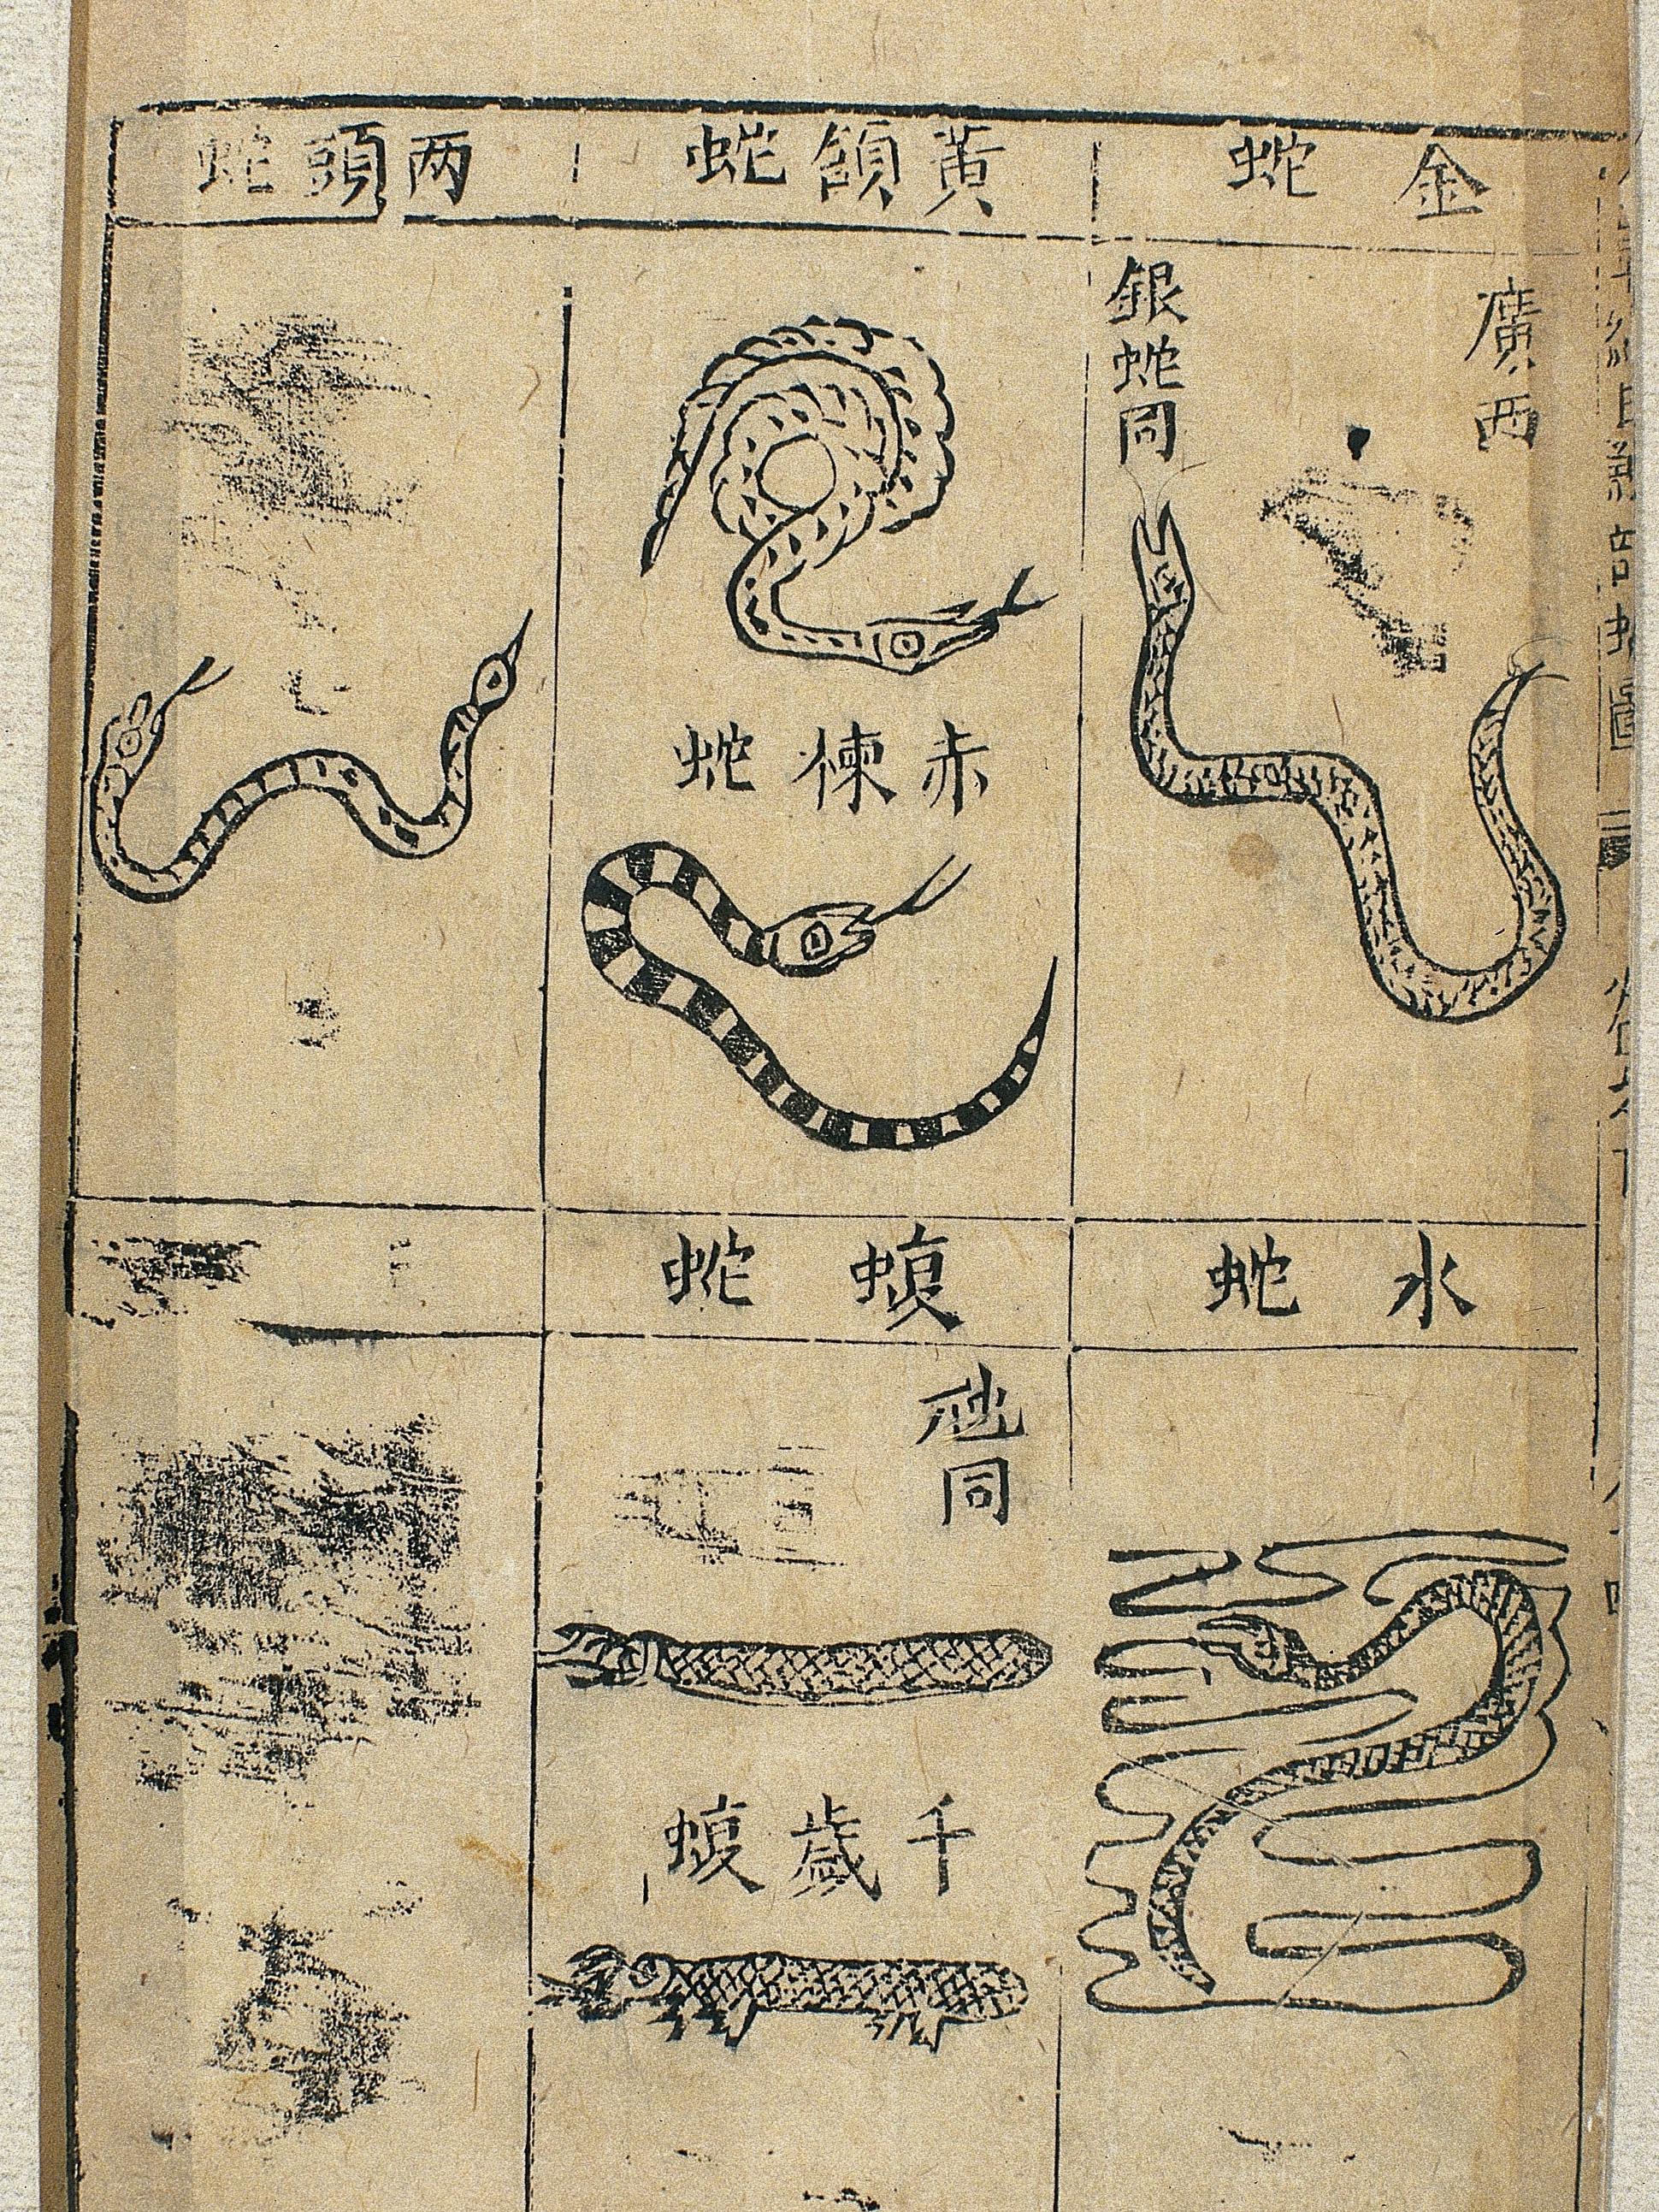 金蛇
廣西
銀蛇同
黄頷蛇
赤楝蛇
两頭蛇
水蛇
蝮蛇
虺同
千歲蝮